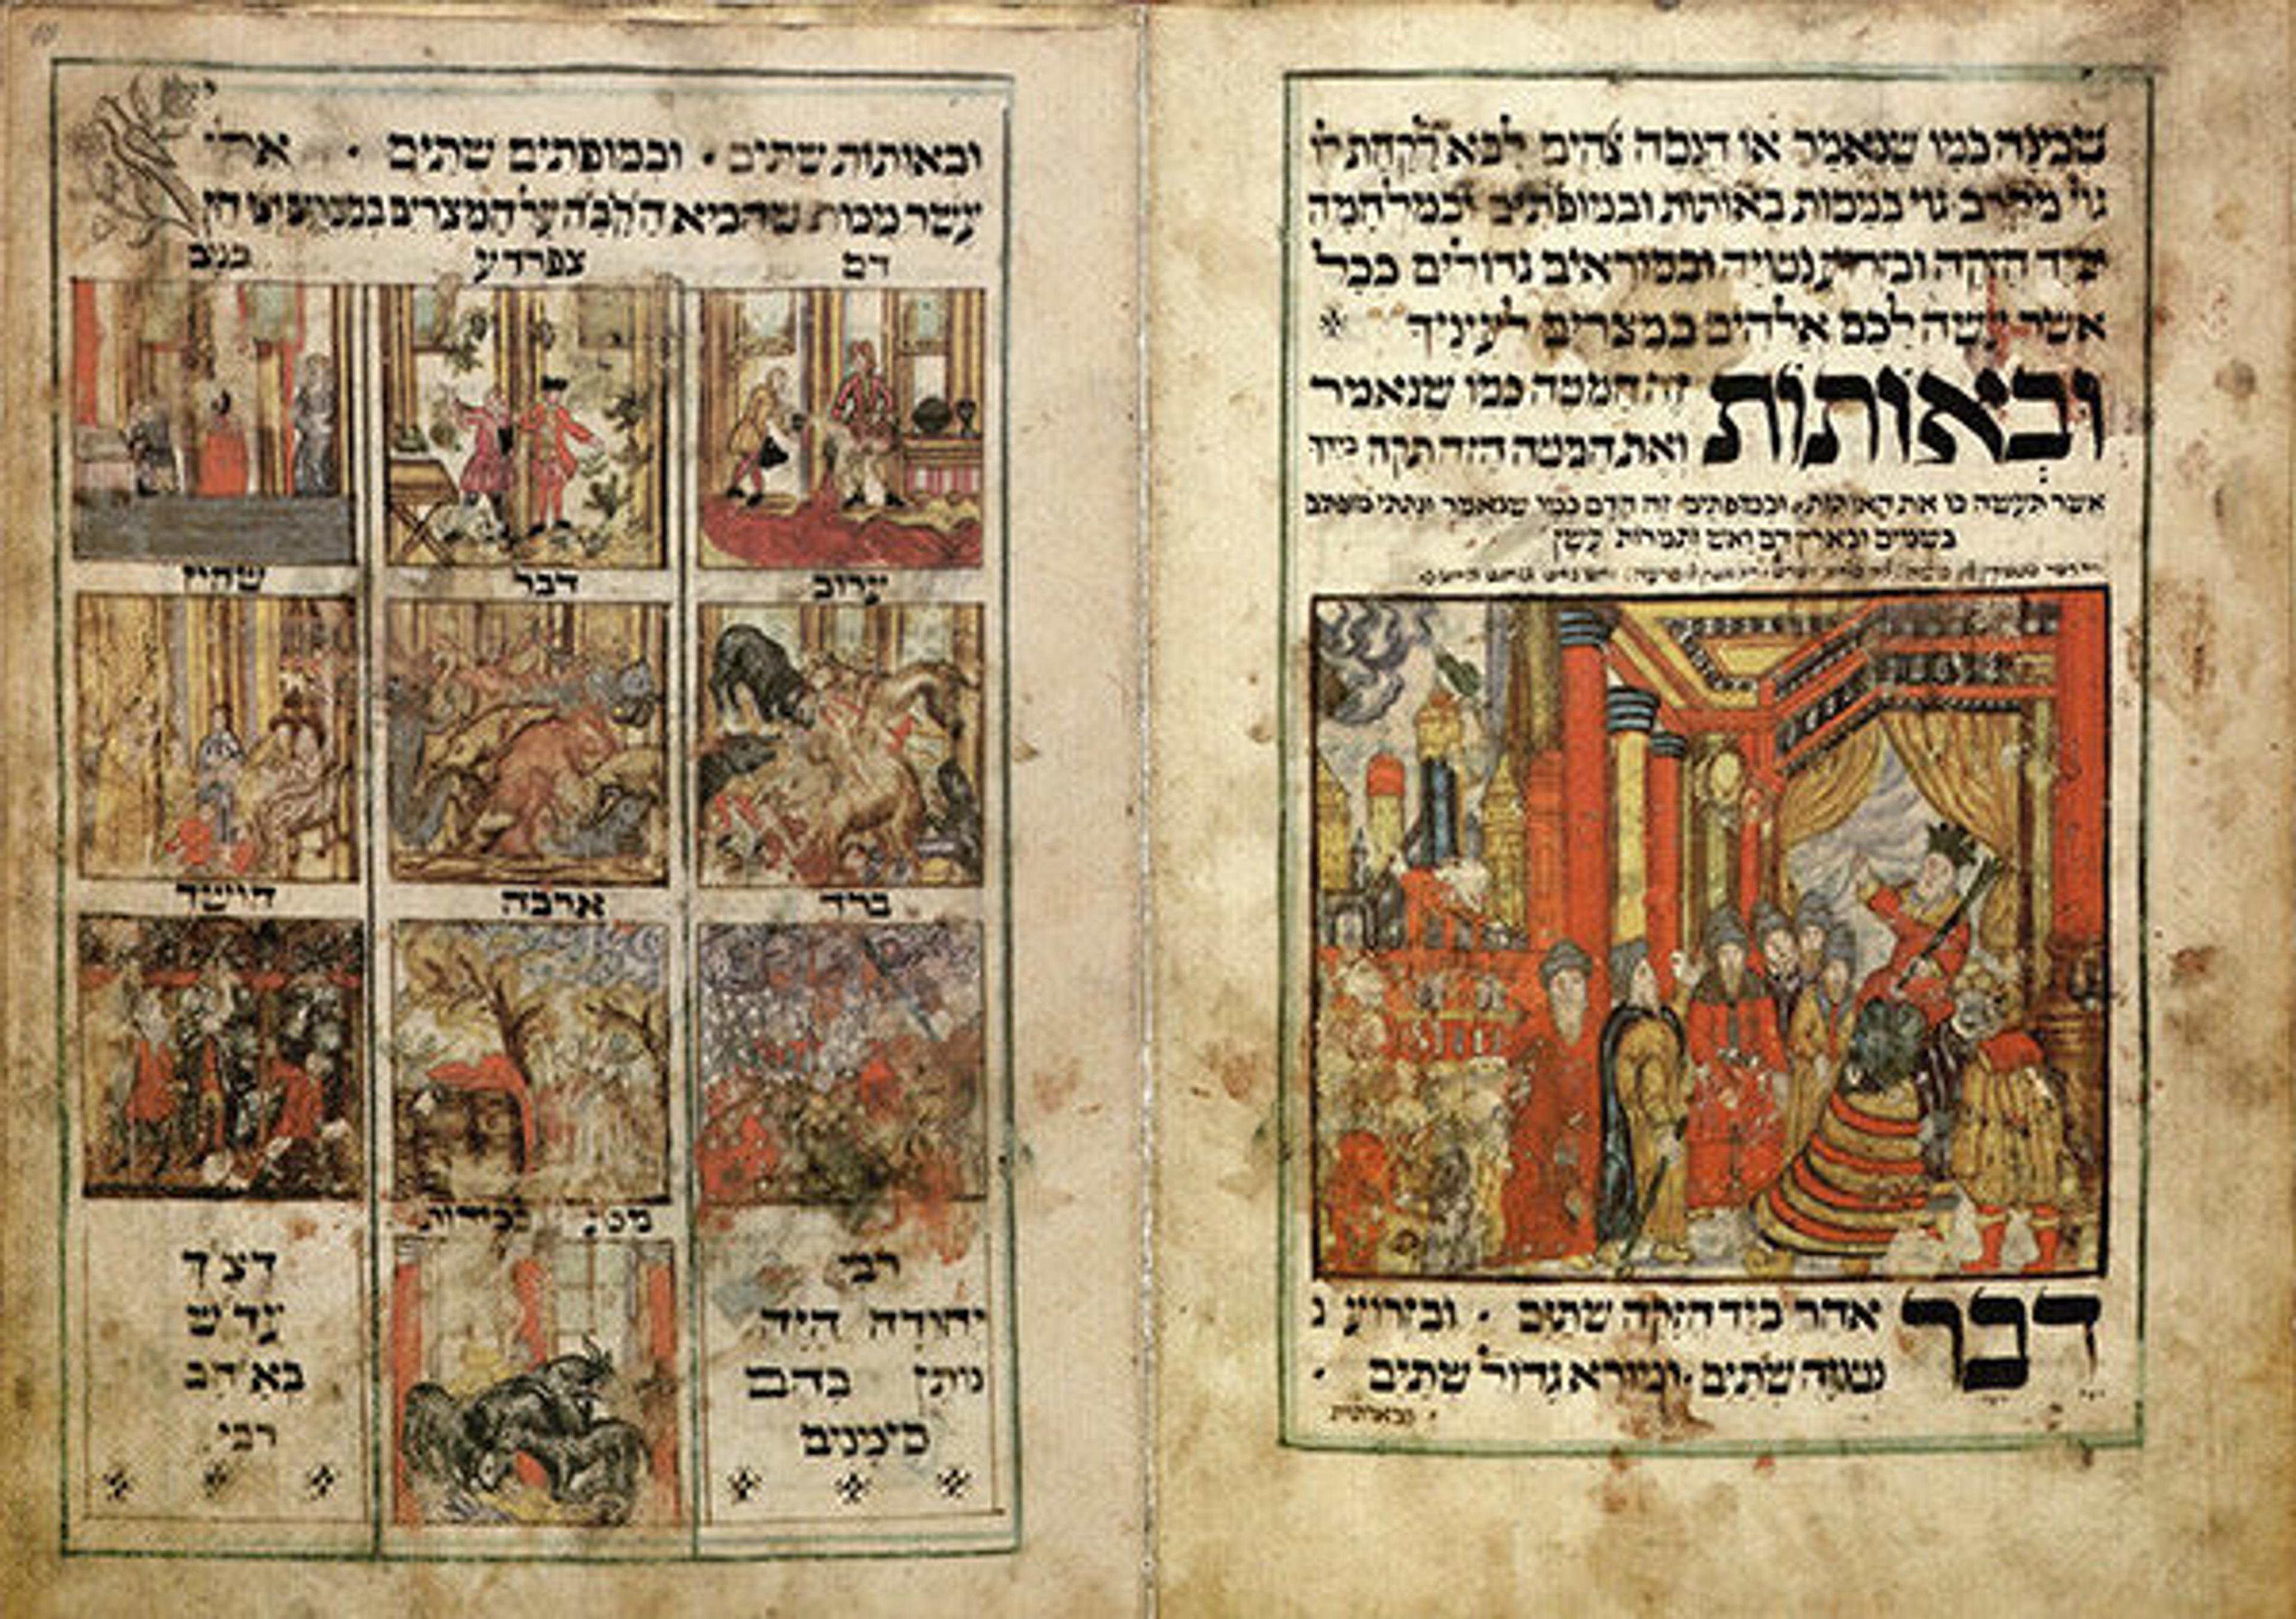 שכינה כמו שנאמר או הנסה אלהים לבא לקחת לו
גוי מקרב גוי במסות באותות ובמופתים ובמלחמה
וביד חזקה ובזרוע נטויה ובמוראים גדולים ככל
אשר עשה לכם אלהים במצרים לעיניך
ובאותות זה המטה כמו שנאמר
ואת המטה הזה תקח בידך
אשר תעשה בו את האותות ובמופתים זה הדם כמו שנאמר ונתתי מופתים
בשמים ובארץ דם ואש ותמרות עשן
דבר אחר ביד חזקה שתים · ובזרוע נ
נטויה שתים · ובמורא גדול שתים ·
ובאותות
ובאותות שתים · ובמופתים שתים · אלו
עשר מכות שהביא הקבה על המצרים במצרים ואלו הן
דם צפרדע כנים
ערוב דבר שחין
ברד ארבה חושך
מכת בכורות
רבי
יהודה היה
נותן בהם
סימנים
דצ״ך
עד״ש
באח״ב
רבי